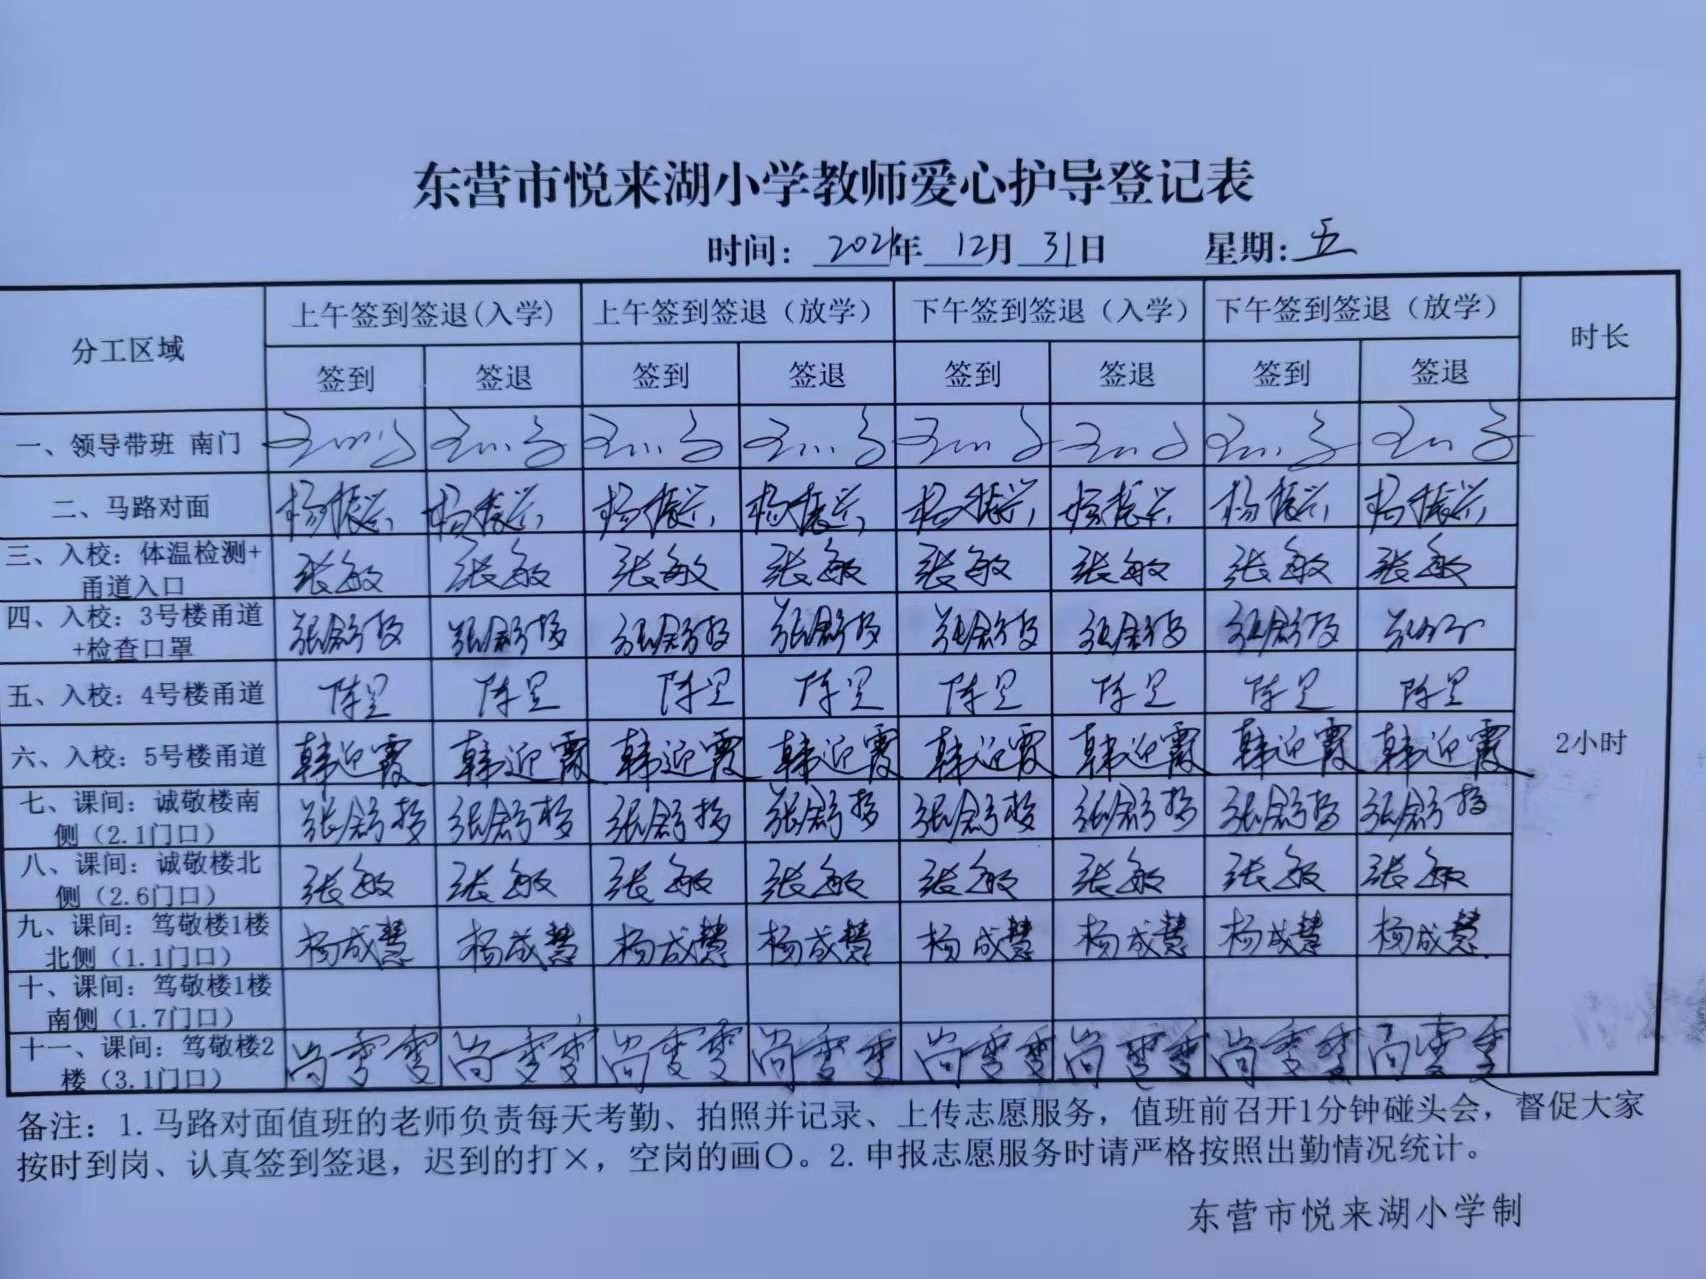 东营市悦来湖小学教师爱心护导登记表
时间： 2021年 12月 31日 星期：五
分工区域 上午签到签退(入学) 上午签到签退（放学） 下午签到签退（入学） 下午签到签退（放学） 时长
签到 签退 签到 签退 签到 签退 签到 签退
一、领导带班 南门
二、马路对面 杨振兴 杨振兴 杨振兴 杨振兴 杨振兴 杨振兴 杨振兴 杨振兴
三、入校：体温检测+
甬道入口 张敏 张敏 张敏 张敏 张敏 张敏 张敏 张敏
四、入校：3号楼甬道
+检查口罩
五、入校：4号楼甬道 陈昱 陈昱 陈昱 陈昱 陈昱 陈昱 陈昱 陈昱
六、入校：5号楼甬道 韩迎霞 韩迎霞 韩迎霞 韩迎霞 韩迎霞 韩迎霞 韩迎霞 韩迎霞
2小时
七、课间：诚敬楼南
侧（2.1门口）
八、课间：诚敬楼北
侧（2.6门口） 张敏 张敏 张敏 张敏 张敏 张敏 张敏 张敏
九、课间：笃敬楼1楼
北侧（1.1门口） 杨成慧 杨成慧 杨成慧 杨成慧 杨成慧 杨成慧 杨成慧 杨成慧
十、课间：笃敬楼1楼
南侧（1.7门口）
十一、课间：笃敬楼2
楼（3.1门口） 尚雯雯 尚雯雯 尚雯雯 尚雯雯 尚雯雯 尚雯雯 尚雯雯 尚雯雯
备注：1.马路对面值班的老师负责每天考勤、拍照并记录、上传志愿服务，值班前召开1分钟碰头会，督促大家
按时到岗、认真签到签退，迟到的打×，空岗的画〇。2.申报志愿服务时请严格按照出勤情况统计。
东营市悦来湖小学制